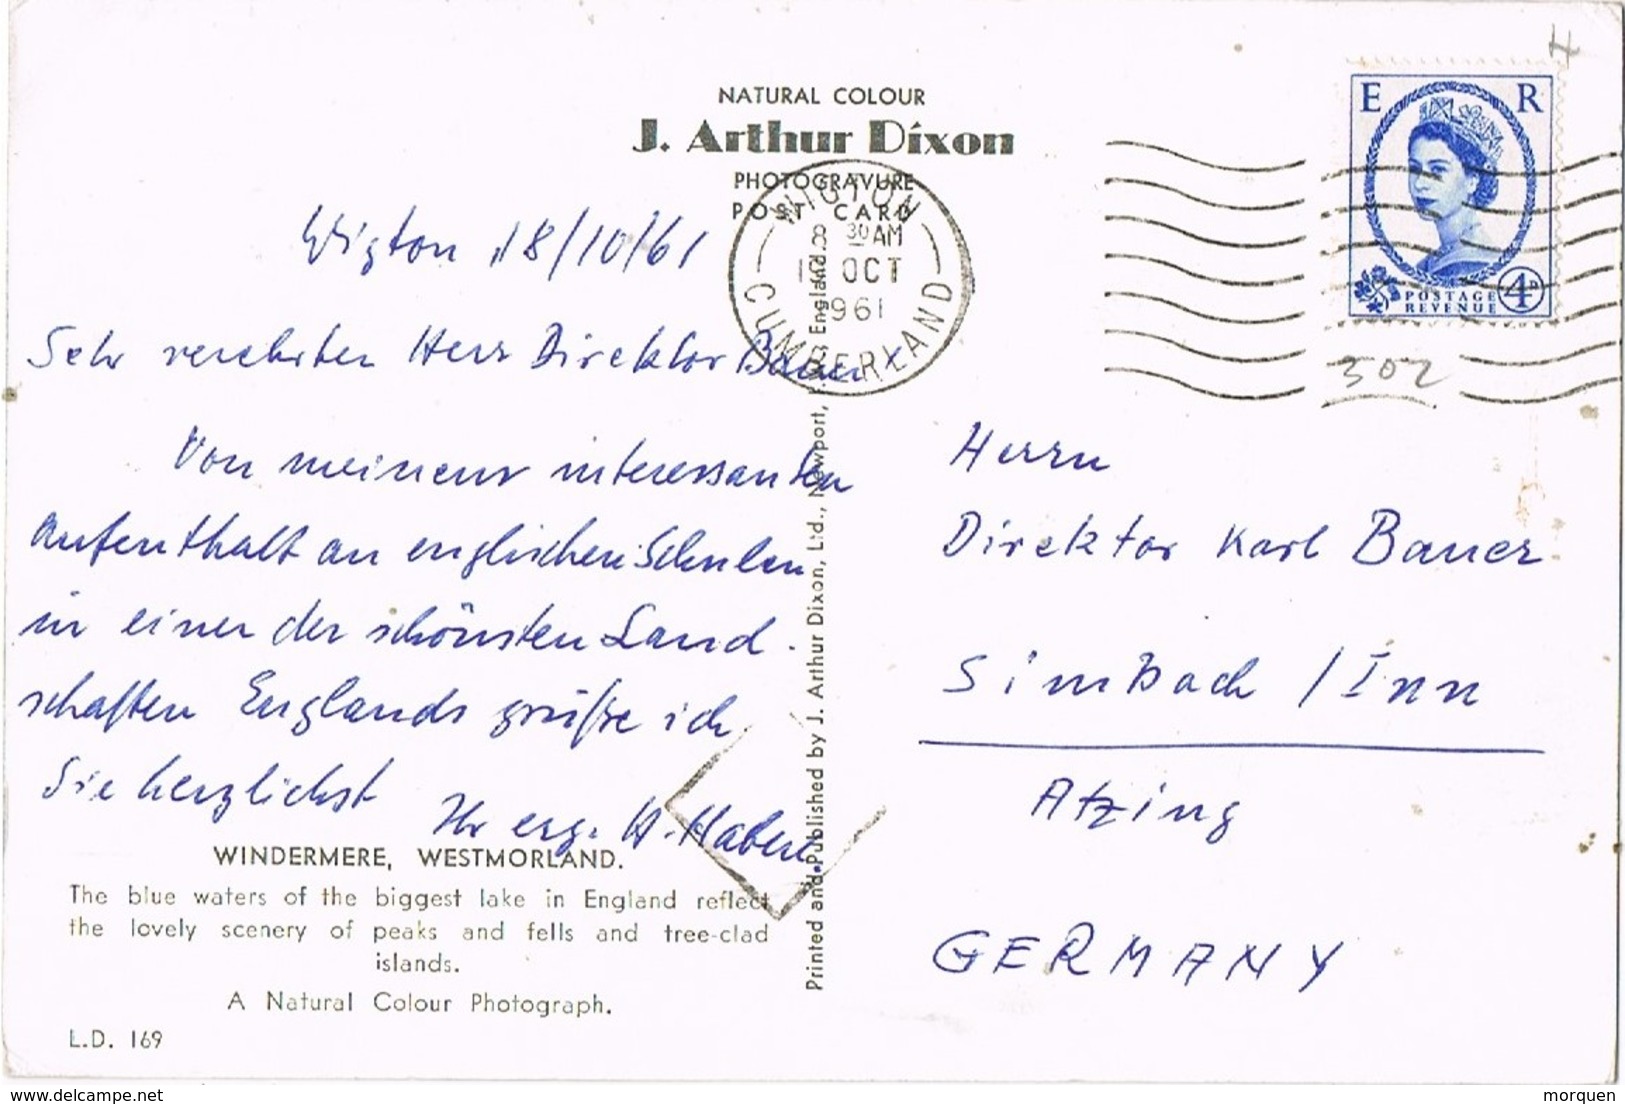 NATURAL COLOUR
J. Arthur Dixon
PHOTOGRAVURE
POST CARD
WIGTON
CUMBERLAND
8 30 AM
19 OCT
1961
E R
POSTAGE
REVENUE
4D
302
Wigton 18/10/61
Sehr verehrter Herr Direktor Bauer
Von meinem interessanten
Aufenthalt an englischen Schulen
in einer der schönsten Land-
schaften Englands grüße ich
Sie herzlichst
Ihr erg. H. Haberl
Herrn
Direktor Karl Bauer
Simbach / Inn
Atzing
GERMANY
WINDERMERE, WESTMORLAND.
The blue waters of the biggest lake in England reflect
the lovely scenery of peaks and fells and tree-clad
islands.
A Natural Colour Photograph.
L.D. 169
Printed and Published by J. Arthur Dixon, Ltd., Newport, England
delcampe.net
morquen